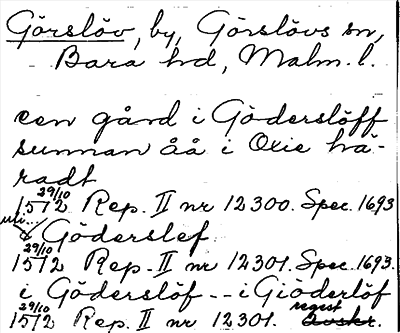 Görslöv, by, Görslövs sn,
Bara hd, Malm. l.
een gård i Göderslöff
sunnan åå i Oxie hä-
radt
29/10
1512 Rep. II nr 12300. Spec. 1693
Göderslef
29/10
1512 Rep. II nr 12301. Spec. 1693.
i Göderslöf -- i Gioderlöf
29/10 regist
1512 Rep. II nr 12301.